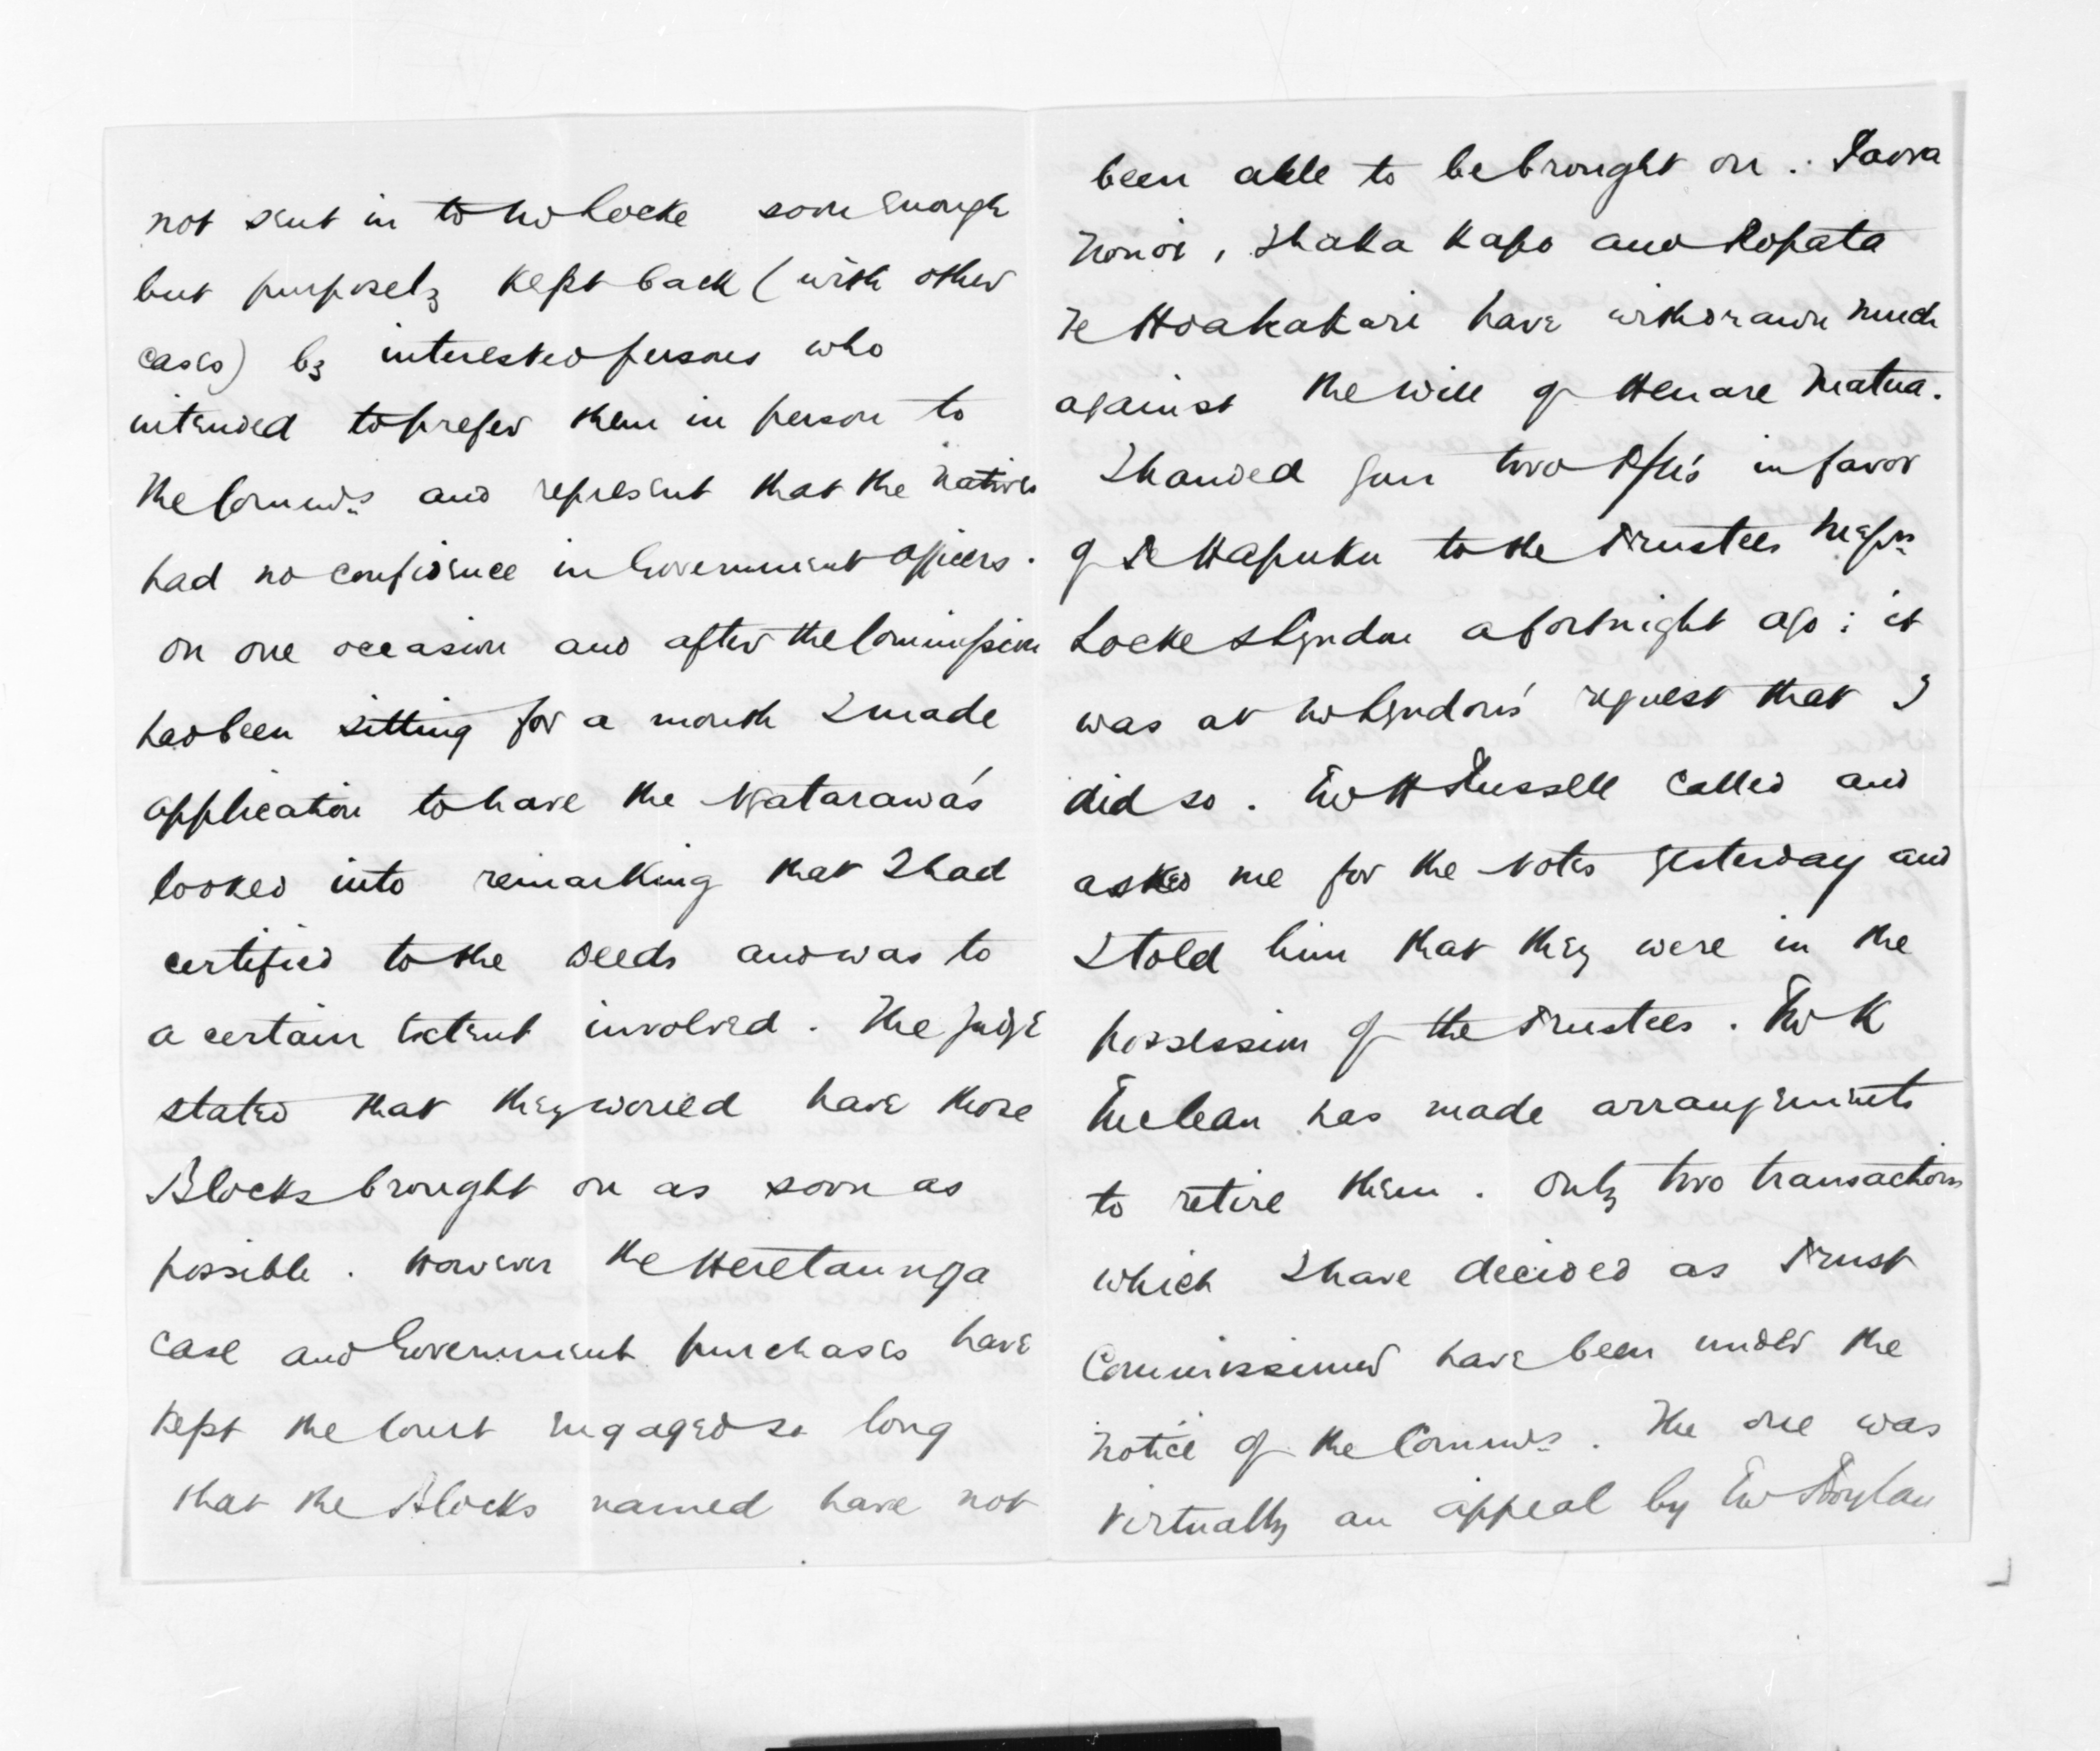 not sent in to Mr Locke soon enough
but purposely kept back (with other
cases) by interested persons who
intended to prefer them in person to
the Commrs and represent that the natives
had no confidence in Government officers.
On one occasion and after the Commission
had been sitting for a month I made
application to have the Ngatarawa's
looked into remarking that I had
certified to the deeds and was to
a certain extent involved. The Judge
stated that they would have those
Blocks brought on as soon as
possible. However the Heretaunga
case and Government purchases have
kept the Court engaged so long
that the Blocks named have not
been able to be brought on. Paora
Nonoi, Ihaka Kapo and Ropata
Te Hoakakari have withdrawn much
against the will of Henare Matua.
I handed two P/N's in favor
of Te Hapuku to the Trustees Messrs
Locke & Lyndon a fortnight ago; it
was at Mr Lyndon's request that I
did so. Mr H Russell called and
asked me for the Notes yesterday and
I told him that they were in the
possession of the Trustees. Mr K
McLean has made arrangements
to retire them. Only two transactions
which I have decided as Trust
Commissioner have been under the
notice of the Commrs. The one was
virtually an appeal by Mr Boylan